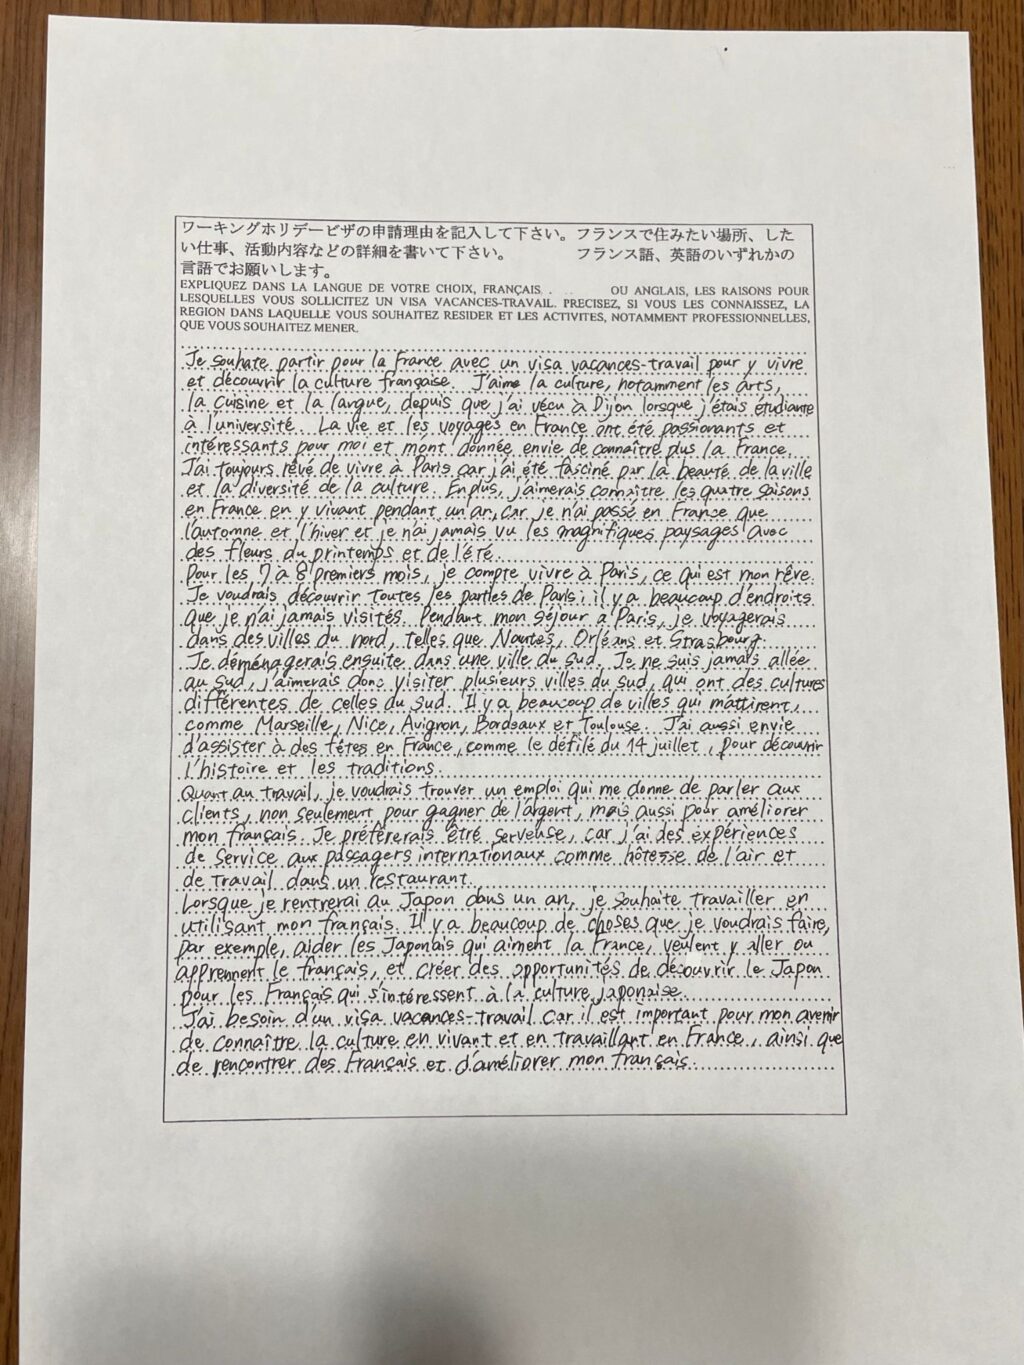 ワーキングホリデービザの申請理由を記入して下さい。フランスで住みたい場所、した
い仕事、活動内容などの詳細を書いて下さい。 フランス語、英語のいずれかの
言語でお願いします。
EXPLIQUEZ DANS LA LANGUE DE VOTRE CHOIX, FRANÇAIS, OU ANGLAIS, LES RAISONS POUR
LESQUELLES VOUS SOLLICITEZ UN VISA VACANCES-TRAVAIL. PRECISEZ, SI VOUS LES CONNAISSEZ, LA
REGION DANS LAQUELLE VOUS SOUHAITEZ RESIDER ET LES ACTIVITES, NOTAMMENT PROFESSIONNELLES,
QUE VOUS SOUHAITEZ MENER.
Je souhate partir pour la France avec un visa vacances-travail pour y vivre
et découvrir la culture française. J'aime la culture, notamment les arts,
la cuisine et la langue, depuis que j'ai vécu à Dijon lorsque j'étais étudiante
à l'université. La vie et les voyages en France ont été passionants et
intéressants pour moi et m'ont donnée envie de connaître plus la France.
J'ai toujours rêvé de vivre à Paris car j'ai été fasciné par la beauté de la ville
et la diversité de la culture. En plus, j'aimerais connaître les quatre saisons
en France en y vivant pendant un an, car je n'ai passé en France que
l'automne et l'hiver et je n'ai jamais vu les magnifiques paysages avec
des fleurs du printemps et de l'été.
Pour les 7 à 8 premiers mois, je compte vivre à Paris, ce qui est mon rêve.
Je voudrais découvrir toutes les parties de Paris; il y a beaucoup d'endroits
que je n'ai jamais visités. Pendant mon séjour à Paris, je voyagerais
dans des villes du nord, telles que Nantes, Orléans et Strasbourg.
Je déménagerais ensuite dans une ville du sud. Je ne suis jamais allée
au sud, j'aimerais donc visiter plusieurs villes du sud, qui ont des cultures
différentes de celles du sud. Il y a beaucoup de villes qui m'attirent,
comme Marseille, Nice, Avignon, Bordeaux et Toulouse. J'ai aussi envie
d'assister à des fêtes en France, comme le défilé du 14 juillet, pour découvrir
l'histoire et les traditions.
Quant au travail, je voudrais trouver un emploi qui me donne de parler aux
clients, non seulement pour gagner de l'argent, mais aussi pour améliorer
mon français. Je préférerais être serveuse, car j'ai des expériences
de service aux passagers internationaux comme hôtesse de l'air et
de travail dans un restaurant.
Lorsque je rentrerai au Japon dans un an, je souhaite travailler en
utilisant mon français. Il y a beaucoup de choses que je voudrais faire,
par exemple, aider les Japonais qui aiment la France, veulent y aller ou
apprennent le français, et créer des opportunités de découvrir le Japon
pour les Français qui s'intéressent à la culture japonaise.
J'ai besoin d'un visa vacances-travail car il est important pour mon avenir
de connaître la culture en vivant et en travaillant en France, ainsi que
de rencontrer des Français et d'améliorer mon français.